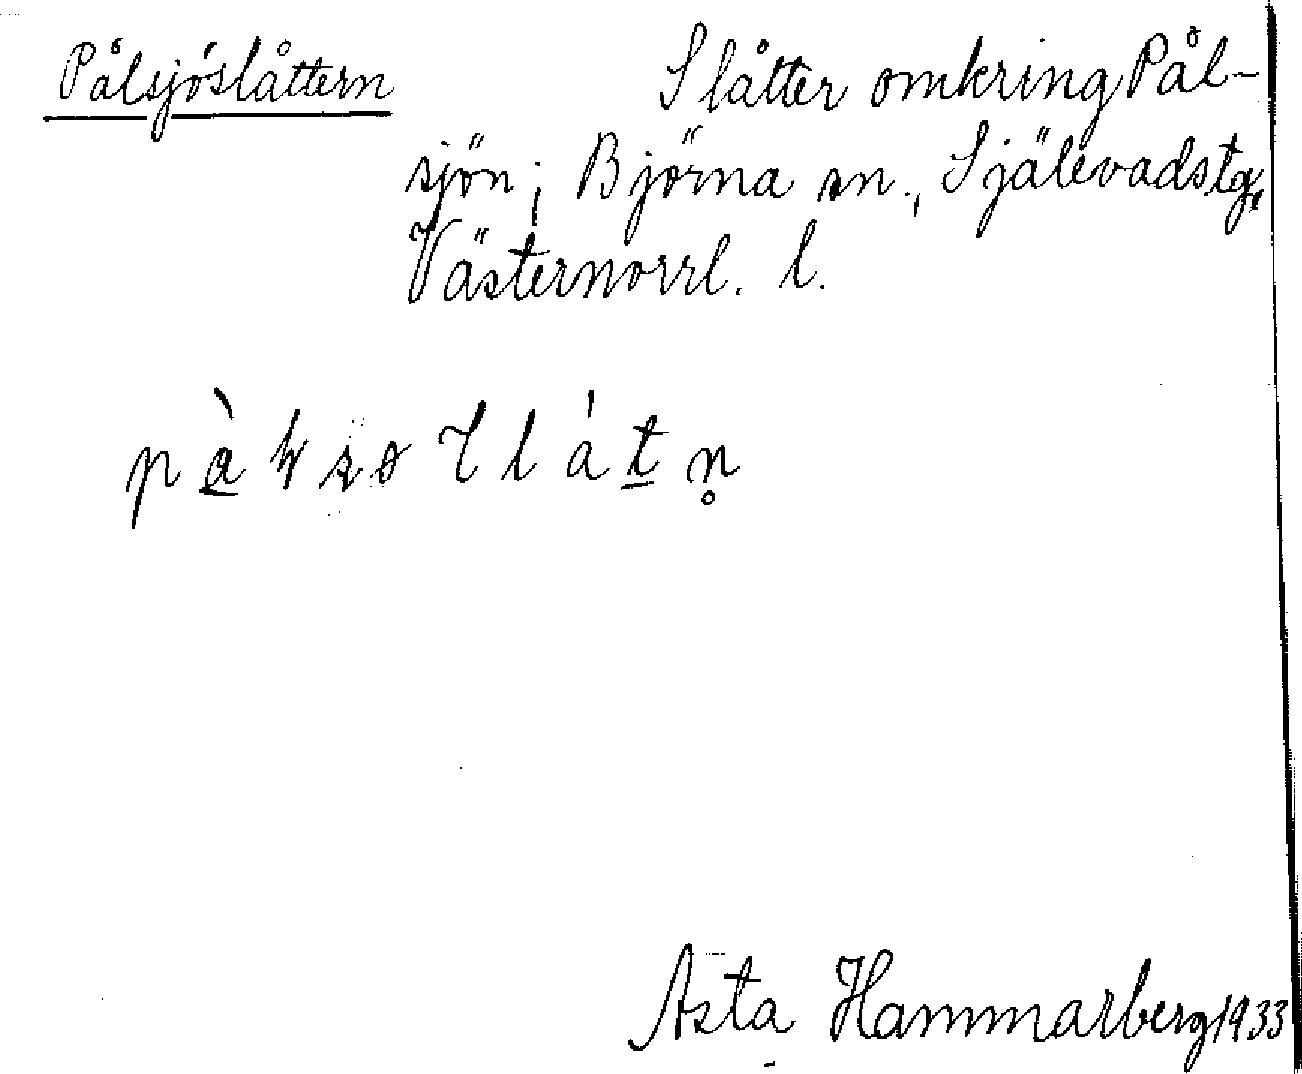 Pålsjöslåttern Slåtter omkring Pål-
sjön; Björna sn., Själevadstg,
Västernorrl. l.
Asta Hammarberg 1933